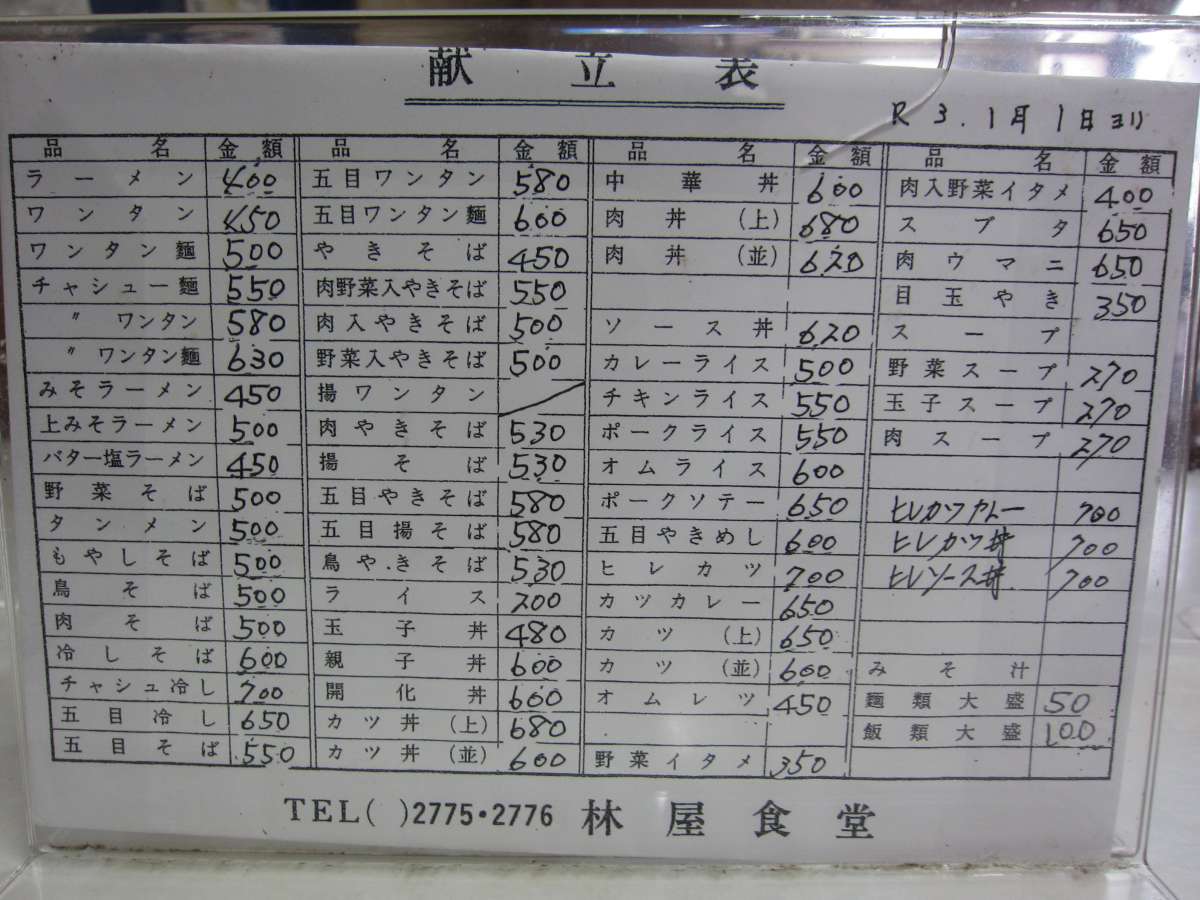 献立表
R3.1月1日ヨリ
品名 金額 品名 金額 品名 金額 品名 金額
ラーメン 400 五目ワンタン 580 中華丼 600 肉入野菜イタメ 400
ワンタン 450 五目ワンタン麺 600 肉丼(上) 680 スブタ 650
ワンタン麺 500 やきそば 450 肉丼(並) 620 肉ウマニ 650
チャシュー麺 550 肉野菜入やきそば 550 目玉やき 350
〃ワンタン 580 肉入やきそば 500 ソース丼 620 スープ
〃ワンタン麺 630 野菜入やきそば 500 カレーライス 500 野菜スープ 270
みそラーメン 450 揚ワンタン チキンライス 550 玉子スープ 270
上みそラーメン 500 肉やきそば 530 ポークライス 550 肉スープ 270
バター塩ラーメン 450 揚そば 530 オムライス 600
野菜そば 500 五目やきそば 580 ポークソテー 650 ヒレカツカレー 700
タンメン 500 五目揚そば 580 五目やきめし 600 ヒレカツ丼 700
もやしそば 500 鳥やきそば 530 ヒレカツ 700 ヒレソース丼 700
鳥そば 500 ライス 200 カツカレー 650
肉そば 500 玉子丼 480 カツ(上) 650
冷しそば 600 親子丼 600 カツ(並) 600 みそ汁
チャシュ冷し 700 開化丼 600 オムレツ 450 麺類大盛 50
五目冷し 650 カツ丼(上) 680 飯類大盛 100
五目そば 550 カツ丼(並) 600 野菜イタメ 350
TEL( )2775・2776 林屋食堂